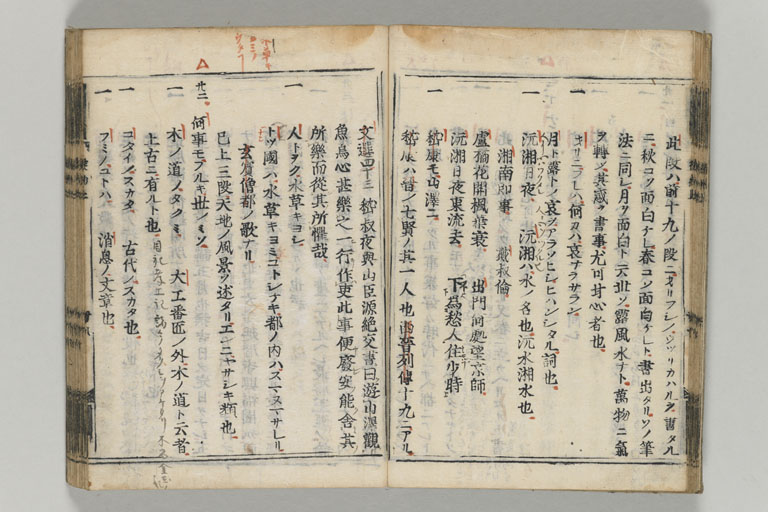 一 此段ハ前十九ノ段ニオリフシノウツリカハルヲ書タル
ニ秋コソ面白ケレ春コソ面白ケレト書出タリソノ筆
法ニ同シ月ヲ面白ト云世ソ露風水ナト萬物ニ氣
ヲ轉シ其感ヲ書事尤可付心者也
一 オリニフレハ何カハ哀ナラサラン
月ト露トノ哀ヲアラソヒシヒハンシタル詞也
一 沅湘日夜 沅湘ハ水ノ名也沅水湘水也
湘南即事 戴叔倫
盧橘花開楓葉衰 出門何處望京師
沅湘日夜東流去 不爲愁人住少時
一 嵆康モ山澤ニ
嵆康ハ晉ノ七賢ノ其一人也 晉列傳十九ニアル
文選四十三 嵆叔夜與山巨源絶交書曰遊山澤觀
魚鳥心甚樂之一行作吏此事便廢安能舍其
所樂而從其所懼哉
一 人トヲク水草キヨシ
トツ國ハ水草キヨミコトシケキ都ノ内ハスマヌマサレリ
玄賓僧都ノ歌ナリ
已上三段天地ノ風景ヲ述タリエンニヤサシキ類也
廿二 何事モフルキ世ノミソ
一 木ノ道ノタクミ 大工番匠ノ外木ノ道ト云者
上古ニ有ルト也
一 コタイノスカタ 古代ノスカタ也
一 フミノコトハ 消息ノ文章也